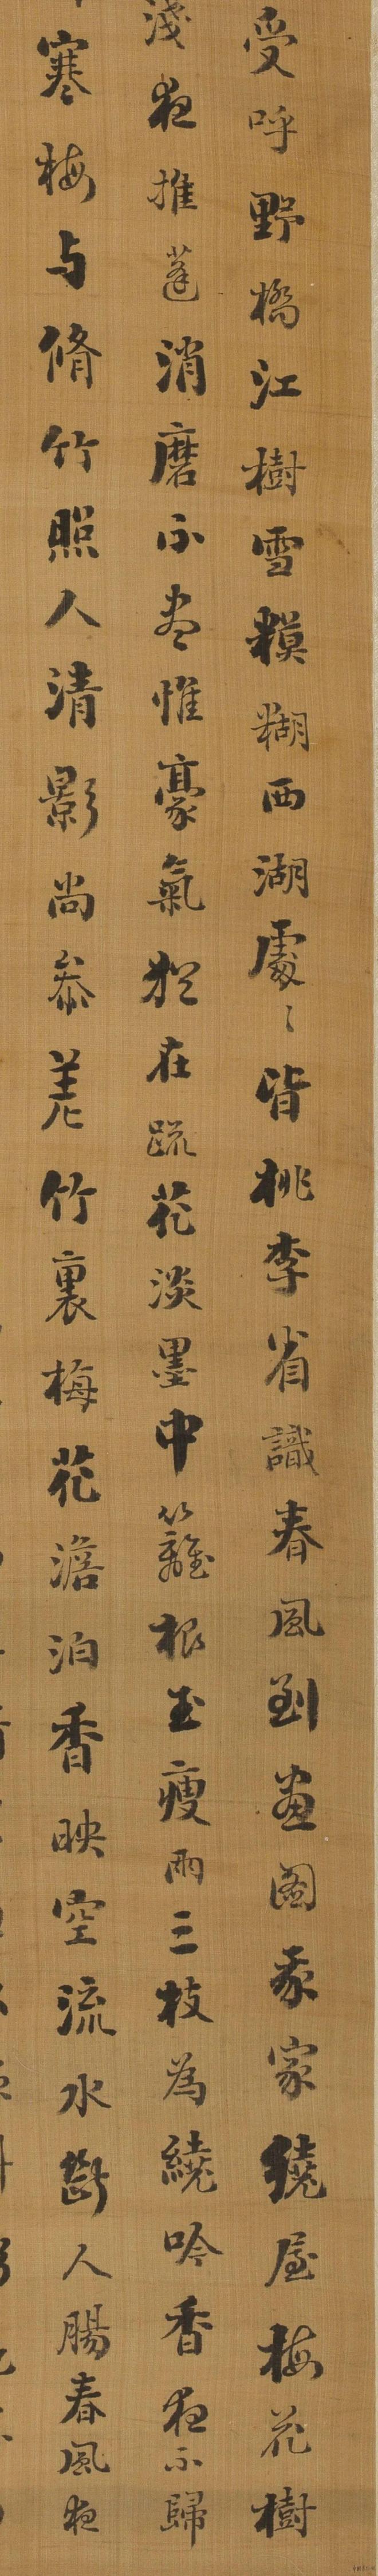 受呼野橋江樹雪糢糊西湖處〻皆桃李省識春風到畫圖我家繞屋梅花樹
淺夜推蓬消磨不盡惟豪氣犹在疏花淡墨中籬根玉瘦兩三枝為繞吟香夜不歸
寒梅与脩竹照人清影尚叅差竹裏梅花澹泊香映空流水斷人腸春風夜